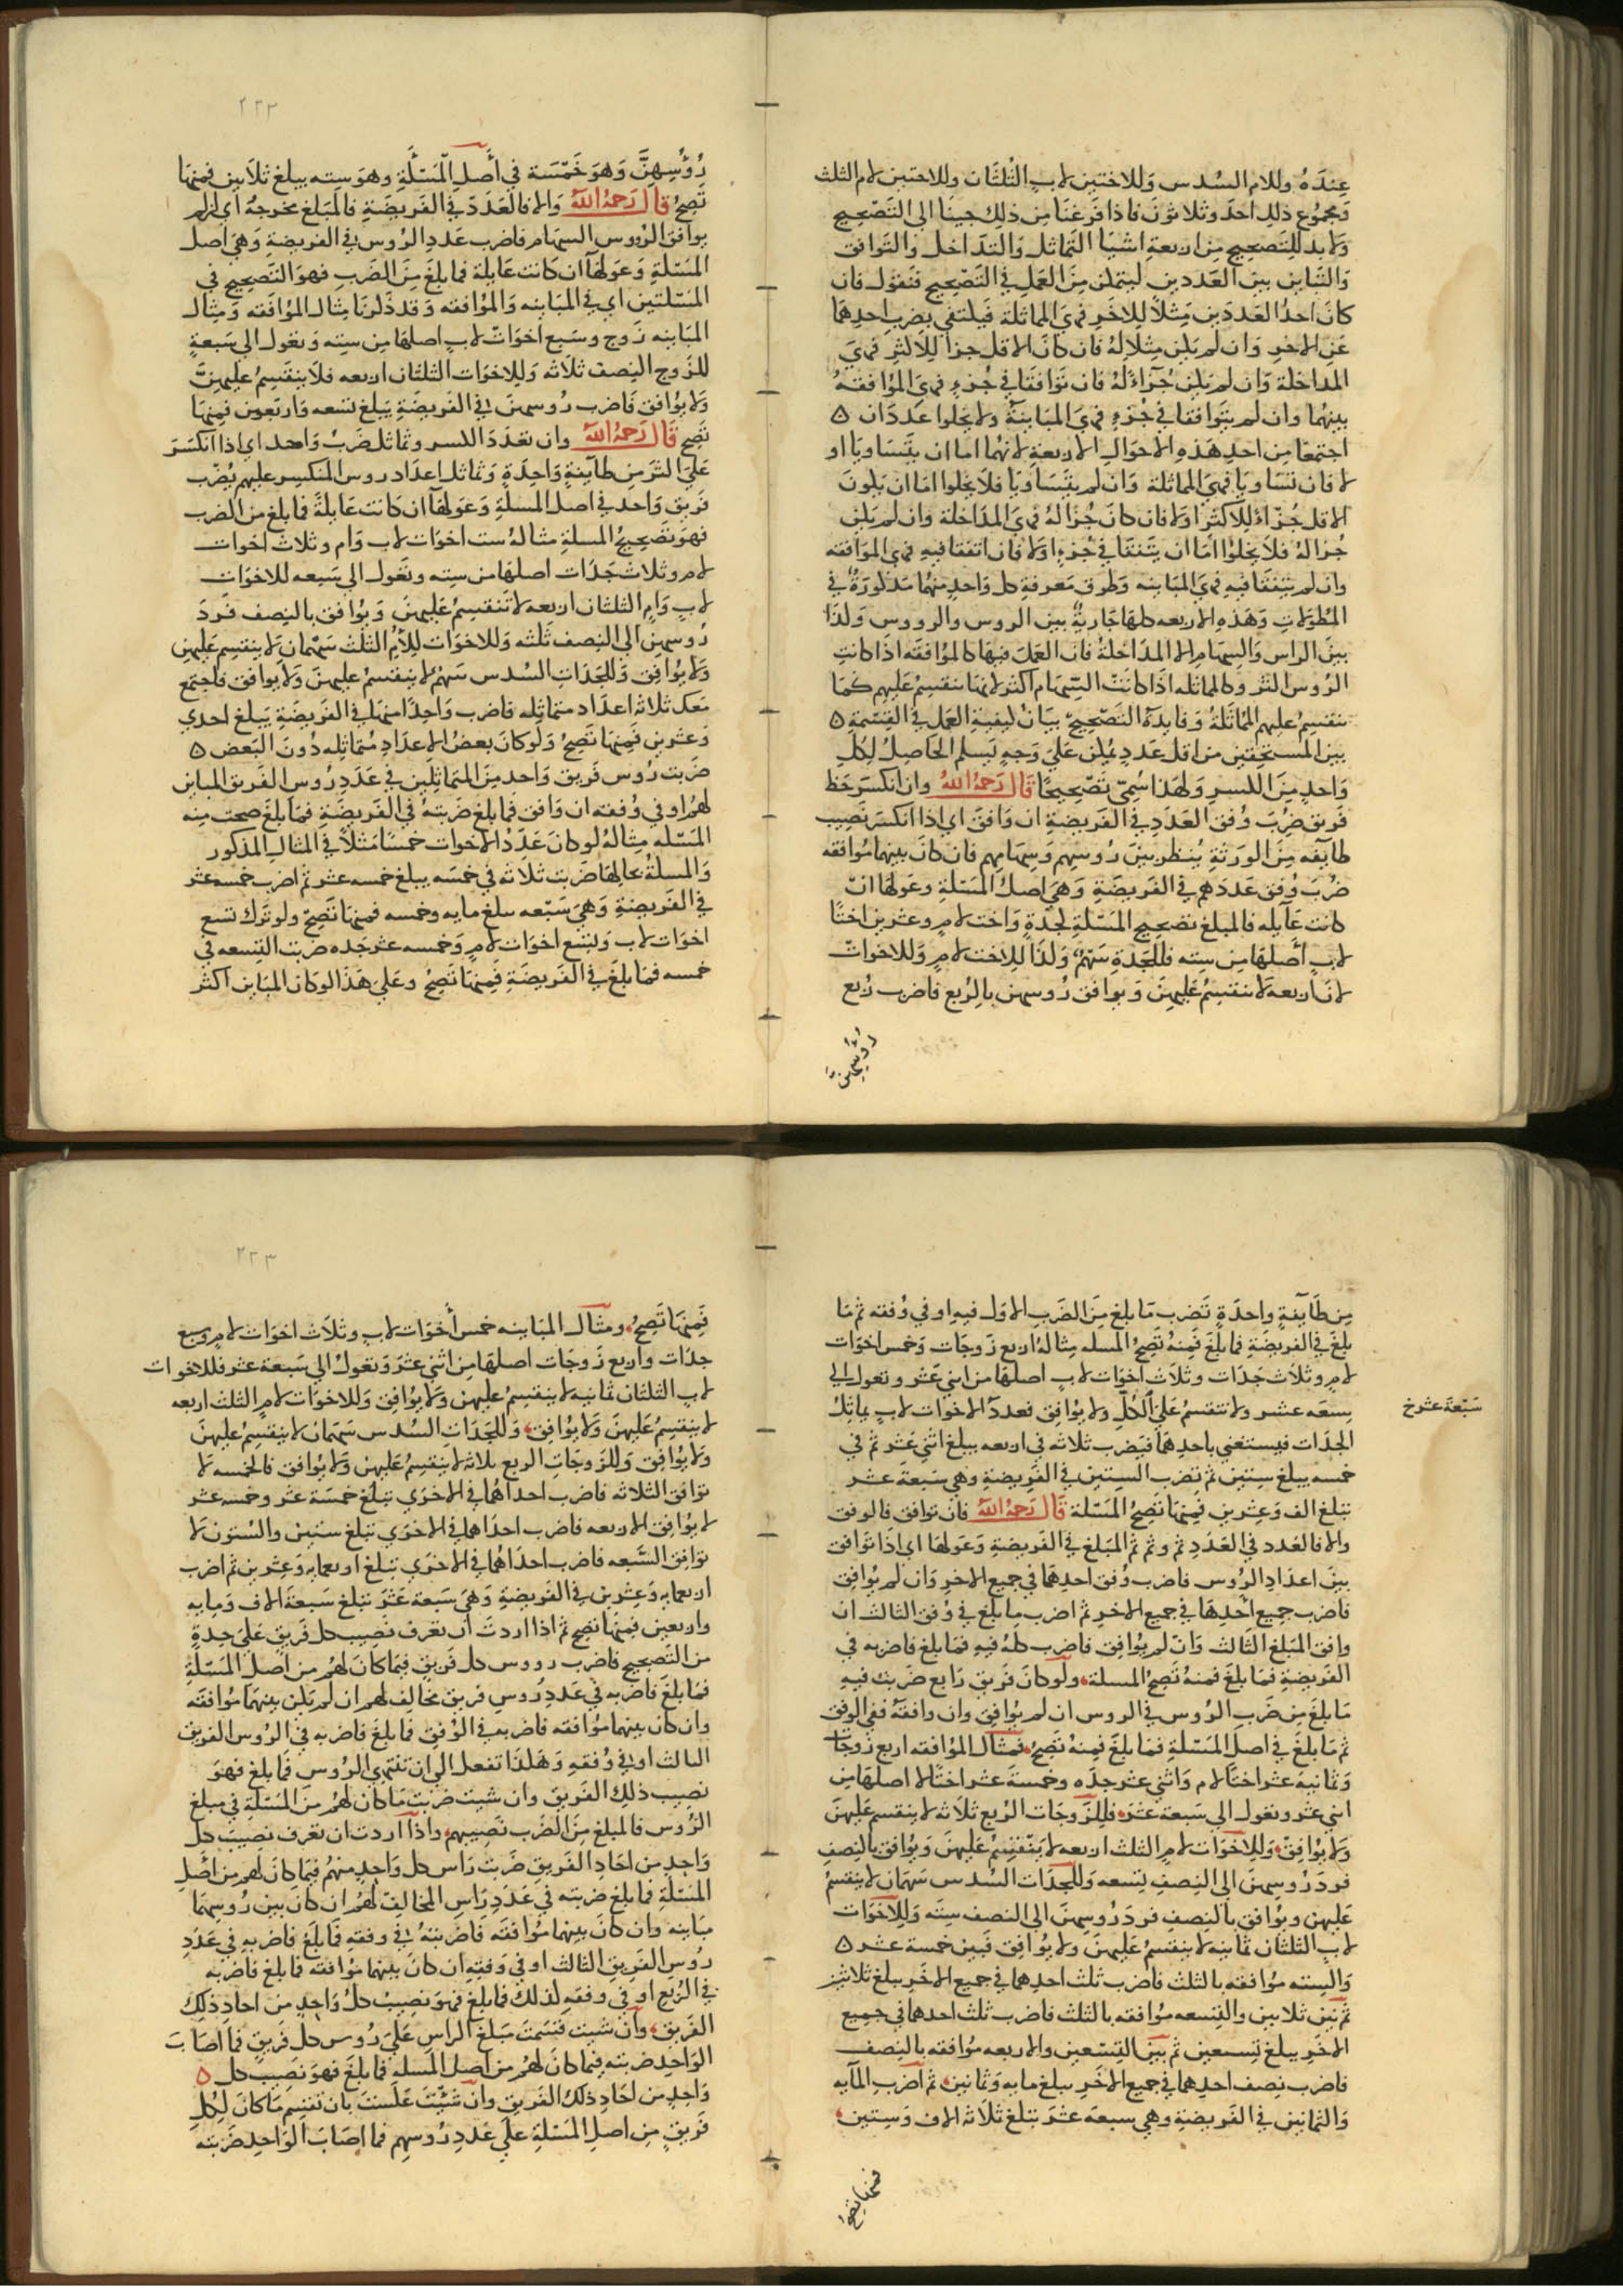 عِندَهُ وللام السُدس وَللاختين لاب الثُلثَان وللاختين لام الثلث
وَمجمُوع ذلك احدَ وثلاثونَ فاذا فَرغنَا مِن ذلِك جينَا الى التَصْحيحِ
ولا بدَ للِتَصحِيح مِن اربعةِ اشيَا التمَاثل وَالتدَاخل وَالتَوَافق
وَالتَبَاين بينَ العَددين ليتمكن مِنَ العَملِ في التَصْحيحِ فنَقول فان
كانَ احدُ العَددَين مِثلاً لِلاخَرِ فهيَ المماثلة فيكتفى بضربِ احدِهمَا
عَن الاخر وَان لم يكن مِثلا له فان كانَ الاقل جزاً للِاكثرِ فهيَ
المداخلة وَان لم يكن جُزْأً لهُ فان توَافقَا في جُزءٍ فهيَ المُوافقهُ
بينهُما وان لم يتَوافقا في جُزءٍ فهيَ المبَاينةُ ولا يخلوا عدَدَان ه
اجتمعَا مِن احدِ هَذِه الاحوَالِ الاربعةِ لانهُما اما ان يتَسَاويَا او
لا فان تسَاويَا فهيَ المماثلة وَان لم يتَسَاوَيا فلا يخلوا امَا ان يكونَ
الاقل جُزْأ للاكثرِ اولا فان كانَ جُزْأ لهُ فهيَ المدَاخلة وان لم يكن
جُزا لهُ فلا يخلوا امَا ان يتَفقَا في جُزءٍ اولا فان اتفقا فيه فهي الموافقه
وان لم يتَفِقَا فيهِ فهيَ المبَاينه وَطرق مَعرفةِ كل وَاحدٍ منهُما مَذكورَةٌ في
المُطَولاتِ وَهَذهِ الاربعه كلهَا جَاريَةٌ بينَ الروس والرووس وكذا
بينَ الراس وَالسِهَامِ الا المدَاخلةُ فان العَملَ فيهَا كالموُافقه اذا كانت
الرُوس اكثر وكالمماثله اذَا كانت السِهَام اكثر لانهَا تنقسِمُ عليهِم كمَا
تنقسِمُ عليهم المماثلةُ وَفايدَة التَصْحِيح بيَانُ كيفية العَملِ في القِسْمةِ ه
بين المستحِقين من اقل عَددٍ يُمكن عَلى وَجهٍ يَسلم الحَاصِلُ لكل
وَاحدٍ مِنَ الكسرِ وَلهَذا سُمِىَ تَصْحِيحًا قَالَ رَحمهُ اللهُ وان انكسَر حَظ
فريق ضُربَ وُفق العَددِ في الفَريضةِ ان وَافقَ اي اذا انكسَر نَصِيب
طايفه مِنَ الورَثةِ يُنظر بينَ رُوسِهم وَسِهَامِهم فان كانَ بينهمَا مُوافقه
ضُربَ وُفق عَددَهم في الفَريضَةِ وَهيَ اصلُ المَسْئلةِ وعَولهَا ان
كانت عَآيله فالمبلغ تصحيح المَسْئلةِ لجدَةٍ وَاخت لامٍ وعشرين اختًا
لابٍ أَصلهَا مِن سِته فللجَدةِ سَهمٌ وَكذا للاخت لامٍ وَللاخواتِ
لابٍ اربعه لا تنقسِمُ عَليهِنَ وَيوافق رُوسهن بالرُبع فاضرب رُبع
رُؤُسِهِنَّ
٢٢٢
رُؤُسِهِنَّ وَهوَ خَمْسَة في أَصلِ المَسْئَلةِ وهوَ سِته يبلغ ثلاثين فمنهَا
تَصِحُ قَالَ رَحمهُ اللهُ وَالا فالعَددَ في الفَريضَةِ فالمَبلغ مخرجهُ اي ان لم
يوافق الرُوس السِهَام فاضرب عَدد الرُوس في الفريضةِ وَهيَ اصل
المَسْئلةِ وَعَولهَا ان كانت عَايلة فما بلغَ مِنَ الضَربِ فهوَ التَصحيح في
المَسْئلتين اي في المبَاينه وَالموُافقه وَقد ذَكرنَا مِثال الموُافَقه وَمِثال
المبَاينه زَوج وسَبع اخوَات لابٍ اصلهَا مِن سِته وَتعُول الى سَبعةٍ
للزَوج النِصف ثلاثه وَللاخوَات الثلثان اربعه فلا تنقَسِمُ عليهِنَّ
وَلا يوُافق فاضرب رُوسهنَ في الفَريضَةِ يَبلغ تسعه وَاربَعين فمِنهَا
تصِح قَالَ رَحمهُ اللهُ وان تعَددَ الكسر وتماثل ضَربُ وَاحد اي اذا انكسَرَ
عَلى اكثرَ مِن طآيفةٍ وَاحِدَةٍ وَتماثل اعدَاد روس المنكسِر عليهِم يُضْرب
فريق وَاحد في اصل المسلةِ وَعَولهَا ان كانت عَايلةً فما بلغ من الضرب
فهوَ تَصحيحُ المسلةِ مثالهُ ست اخوَات لاب وَام وثلاث اخوات
لام وثلاث جَدَات اصلهَا من سِته وتَعول الى سَبعه للاخوَاتِ
لاب وَامٍ الثلثان اربعه لا تَنقسِمُ عَليهِنَ وَيوُافق بالنصف فَردَ
رُوسهِن الى النصف ثَلثه وَللاخوَات للأمِ الثلث سَهمَان لا ينقسِم عَليهن
وَلا يوُافق وَللجَدَاتِ السُدس سَهم لا ينقسمُ عليهنَ وَلا يوافق فاجتمع
مَعك ثلاثه اعدَاد متماثِله فاضرب وَاحِدًا منهَا في الفَريضَةِ يَبلغ احدى
وَعشرين فمِنهَا تَصِحُ وَلو كانَ بعضُ الاعدَادِ مُتماثِله دُونَ البَعض ه
ضَربت رُوس فَريق وَاحدٍ مِنَ المتَماثِلين في عَدَدِ رُوسِ الفَريق المباين
لهُم او في وُفقه ان وَافق فمَا بلغ ضَربتهُ في الفَريضَةِ فمَا بلغَ صحت مِنه
المَسْئله مِثالهُ لو كانَ عَدَدُ الاخوات خمسًا مَثلاً في المثالِ المذكور
وَالمسلةُ بحالِهَا ضَربت ثلاثه في خمسَه يبلغ خمسه عشر ثم اضرب خمسه عشر
في الفَريضةِ وَهيَ سَبْعه يبلغ مايه وخمسه فمنهَا تَصِحّ ولو ترك تسع
اخوَات لاب وَلتسع اخوَاتٍ لامٍ وَخمسه عشر جَده ضربت التِسعه في
خمسه فمَا بلغَ في الفَريضَةِ فمِنهَا تَصِحُ وعَلى هَذا لو كان المبَاين اكثر
سَبْعَةَ عشرَ خ
مِن طَآيفةٍ واحدَةٍ تَضرب مَا بلغَ مِنَ الضَربِ الاوَل فيهِ او في وُفقه ثم مَا
بلغَ في الفريضَةِ فما بلَغَ فمنهُ تَصِحُ المسله مِثالهُ اربع زَوجَات وَخمسَ اخوَات
لامٍ وثلاث جَدَات وثلاث اخوَات لابٍ اصلهَا من اثني عَشر وتعول الى
سِبعَه عشر ولا تنقسمُ عَلى الكُلّ ولا يوُافق فعددُ الاخوات لاب يماثِلُ
الجدَات فيستغنى باحدِهمَا فيَضرب ثلاثه في اربعه يبلغ اثني عَشر ثم في
خمسه يبلغ سِتين ثم تضرب السِتين في الفَريضةِ وهي سَبعة عشر
تبلغ الف وَعِشرين فمِنهَا تَصِحُ المَسْئلة قَالَ رَحمهُ اللهُ فان توافق فالوفق
والا فالعدد في العَدَدِ ثم وثم ثم المَبلغ في الفَريضةِ وَعَولهَا اي اذَا توَافقَ
بينَ اعدَادِ الرُوس فاضرب وُفق احدِهمَا في جميع الاخرِ وَان لم يُوافِق
فاضرب جميع أحدِهَا في جميع الاخرِ ثم اضرب ما بَلغَ في وُفق الثالث ان
وَافق المَبلغ الثالث وَان لم يوُافق فاضرب كلهُ فيهِ فمَا بلغ فاضربه في
الفَريضةِ فمَا بلغَ فمنهُ تَصِحُ المسلة ولو كانَ فريق رَابع ضَربت فيه
مَا بلغَ مِن ضَربِ الرُوس في الروس ان لم يوُافق وان وافقهُ ففي الوفق
ثم مَا بلغَ في اصلِ المَسْئلةِ فمَا بلغَ فمِنهُ تصِحُ فمثال الموُافقه اربع زَوجَات
وَثمانيَه عشر اختًا لام وَاثني عشر جدَه وخمسَة عشر اختًا لاب اصلهَا مِن
اثنى عشر وتعول الى سَبعَة عشَرَ فللزَوجَات الرُبع ثلاثه لا تنقسم عَليهنَ
وَلا يوُافق وَللاخوَات لامِ الثلث اربعه لا يَنقسِمُ عَليهنَ وَيوُافق بالنصِفِ
فردَ رُوسِهنَ الى النصِفِ تِسعه وَللجدَات السُدس سَهمَان لا ينقسمُ
عَليهن ويوُافق بالنصِف فردَ رُوسِهنَ الى النصف سِتَه وَللِاخوَاتِ
لابٍ الثلثان ثمانيه لا ينقسِمُ عَليهنَ ولا يوُافق فبَين خمسة عشر ه
وَالسِته موُافقه بالثلث فاضرب ثلث احدِهما في جميع الاخر يبلغ ثلاثين
ثم بَين ثلاثين والتِسعه موُافقه بالثلث فاضرب ثلث احدهما في جميع
الاخرِ يبلغ تِسعين ثم بين التِسْعين والاربعه موُافقه بالنصِف
فاضرب نِصف احدِهما في جميع الاخر يبلغ مايه وَثمانين ثم اضرب المآيه
وَالثمانين في الفَريضةِ وهي سبعه عشرَ تبلغ ثلاثه الاف وَسِتين
فمنهَا تَصِحُ
٢٢٣
فَمِنهَا تَصِحُ ومثال المبَاينه خمس أخوَات لابٍ وثلاث اخوَات لامٍ وسبع
جدَات واربع زَوجَات اصلهَا مِن اثنى عشَرَ وَتعول الى سَبعة عشر فللاخوات
لابِ الثلثان ثمانيه لا ينقسمُ عليهن وَلا يوُافق وَللاخوَات لامٍ الثلث اربعه
لا ينقسِمُ عَليهنَ وَلا يوُافق وَللجَدَات السُدس سَهمَان لا ينقِسمُ عَليهنَ
ولا يوُافق وَللزَوجَاتِ الربع ثلاثه لا ينقسِمُ عَليهن وَلا يوُافق فالخمسه لا
توَافق الثلاثه فاضرب احداهُما في الاخرَى تبلُغ خمسَة عَشر وخمسه عشر
لا يوُافق الاربعه فاضرب احدَاهما في الاخرَى تبلغ ستين والستون لا
توَافق السَبعه فاضرب احدَاهُما في الاخرَى تبلغ اربعمايه وَعِشرين ثم اضرب
اربعمايه وَعِشرين في الفَريضةِ وَهيَ سَبعة عَشَرَ تبلغ سَبعة الاف وَمايه
واربعين فمِنهَا تصِح ثم اذا اردت ان تعرف نَصِيب كل فَريقٍ عَلى حِدةٍ
من التَصحيح فاضرب رووس كل فَريقٍ فيمَا كانَ لهُم من اصل المَسْئلةِ
فمَا بلغَ فاضربه في عَددِ رُوس فريقٍ مخالِف لهم ان لم يكن بينهمَا مُوافقه
وان كان بينهما مُوافقه فاضربه في الوُفق فمَا بلغَ فاضربه في الرُوس الفريق
الثالث او في وُفقهِ وَهكذا تفعل الى ان تنتهى الرُوس فمَا بلغ فهوَ
نصِيب ذلك الفَريق وان شيت ضَربت مَا كان لهُم مِنَ المَسْئلةِ في مبلغ
الرُوس فالمبلغ مِنَ الضَرب نَصِيبهم واذا اردت ان تعرف نصيبَ كل
وَاحدٍ من احَادِ الفَريقِ ضَربت رَاس كل وَاحدٍ منهُم فيمَا كانَ لهم مِن اصْلِ
المَسْئلةِ فما بلغ ضَربته في عَدَدِ رَاسِ المخالِفِ لهُم ان كانَ بينَ رُوسِهمَا
مبَاينه وان كانَ بينهما مُوافقه فاضربتهُ في وفقهِ فمَا بلَغ فاضربه في عَدَدِ
رُوسِ الفَريقِ الثالث او في وَفقِهِ ان كانَ بينهما موُافقه فما بلغ فاضربه
في الرابع او في وفقه كذلك فما بلغ فهوَ نصيبُ كل وَاحدٍ من احاد ذلِك
الفَريق وان شيت قسَمت مَبلغ الراس عَلى رُوس كل فَريقٍ فما اصَابَ
الوَاحد ضربته فيما كانَ لهم من اصل المسله فما بلغَ فهوَ نَصِيب كل ه
وَاحدٍ من احَادِ ذلك الفَريق وان شَئتَ عَكست بان تقسِم مَا كانَ لِكُل
فَريقٍ مِن اصلِ المَسْئلةِ عَلى عَدَدِ رُوسِهِم فما اصَابَ الوَاحد ضَربته